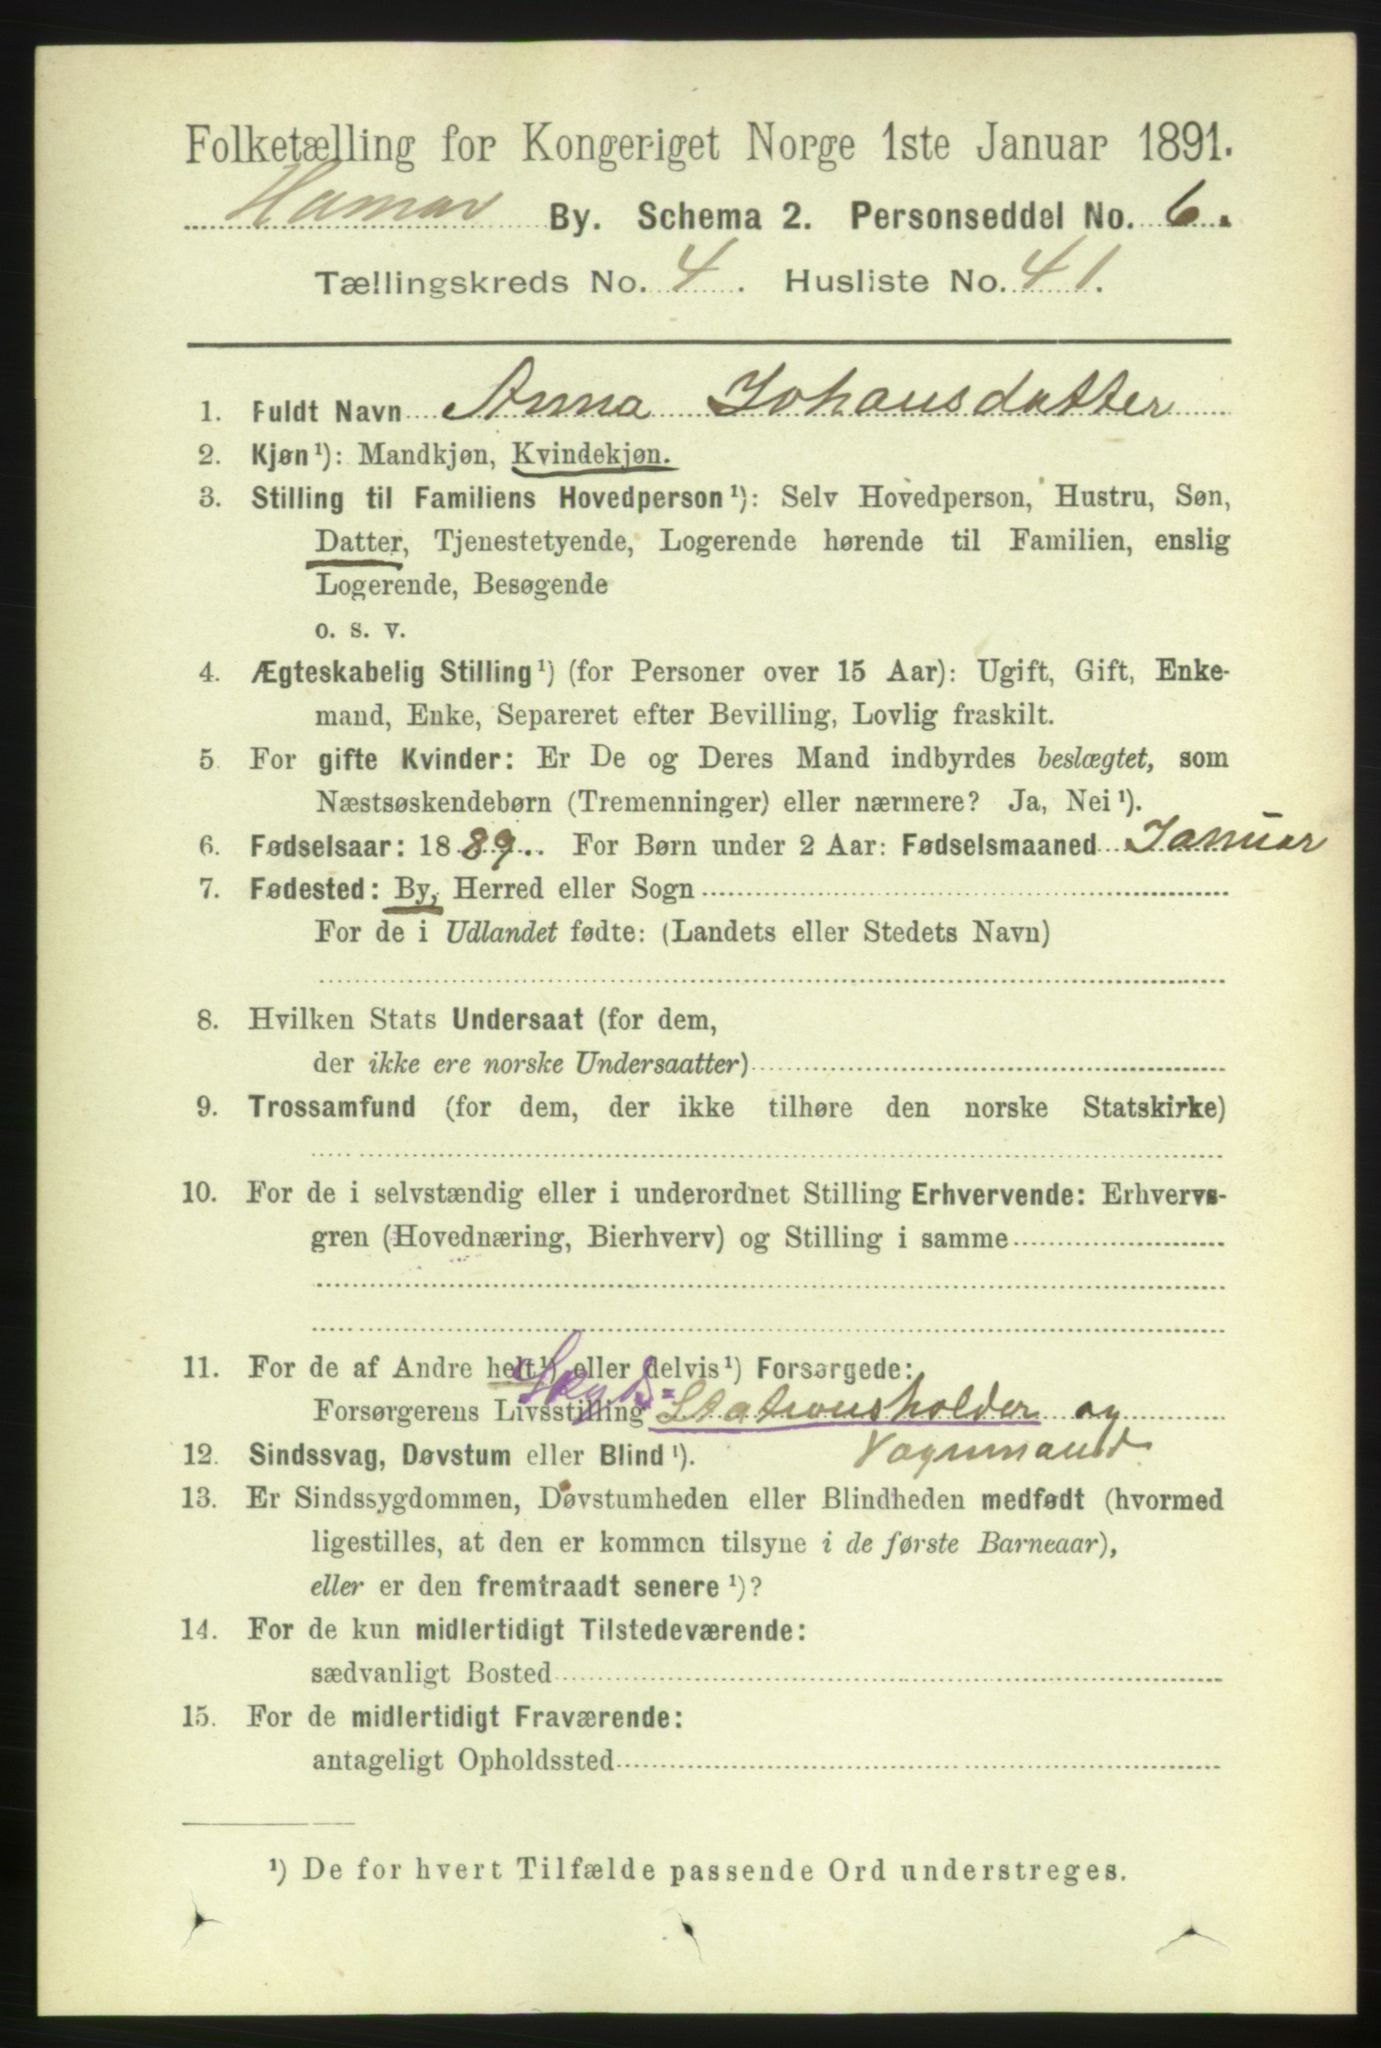 Folketælling for Kongeriget Norge 1ste Januar 1891.
Hamar By. Schema 2. Personseddel No. 6.
Tællingskreds No. 4. Husliste No. 41.
1. Fuldt Navn Anna Johansdatter
2. Kjøn¹): Mandkjøn, Kvindekjøn.
3. Stilling til Familiens Hovedperson¹): Selv Hovedperson, Hustru, Søn,
Datter, Tjenestetyende, Logerende hørende til Familien, enslig
Logerende, Besøgende
o. s. v.
4. Ægteskabelig Stilling¹) (for Personer over 15 Aar): Ugift, Gift, Enke-
mand, Enke, Separeret efter Bevilling, Lovlig fraskilt.
5 For gifte Kvinder: Er De og Deres Mand indbyrdes beslægtet, som
Næstsøskendebørn (Tremenninger) eller nærmere? Ja, Nei¹).
6. Fødselsaar: 1889. For Børn under 2 Aar: Fødselsmaaned Januar
7. Fødested: By, Herred eller Sogn
For de i Udlandet fødte: (Landets eller Stedets Navn)
8. Hvilken Stats Undersaat (for dem,
der ikke ere norske Undersaatter)
9. Trossamfund (for dem, der ikke tilhøre den norske Statskirke)
10. For de i selvstændig eller i underordnet Stilling Erhvervende: Erhvervs-
gren (Hovednæring, Bierhverv) og Stilling i samme
11. For de af Andre helt¹) eller delvis¹) Forsørgede:
Skyds-
Forsørgerens Livsstilling Stationsholder og
Vognmand
12. Sindssvag, Døvstum eller Blind¹).
13. Er Sindssygdommen, Døvstumheden eller Blindheden medfødt (hvormed
ligestilles, at den er kommen tilsyne i de første Barneaar),
eller er den fremtraadt senere¹)?
14. For de kun midlertidigt Tilstedeværende:
sædvanligt Bosted
15. For de midlertidigt Fraværende:
antageligt Opholdssted
¹) De for hvert Tilfælde passende Ord understreges.